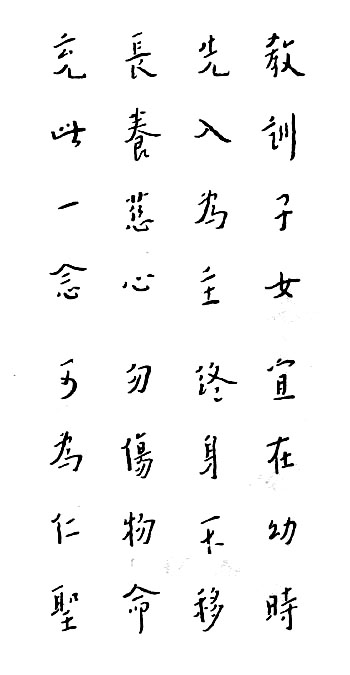 教訓子女宜在幼時
先入為主終身不移
長養慈心勿傷物命
充此一念可為仁聖